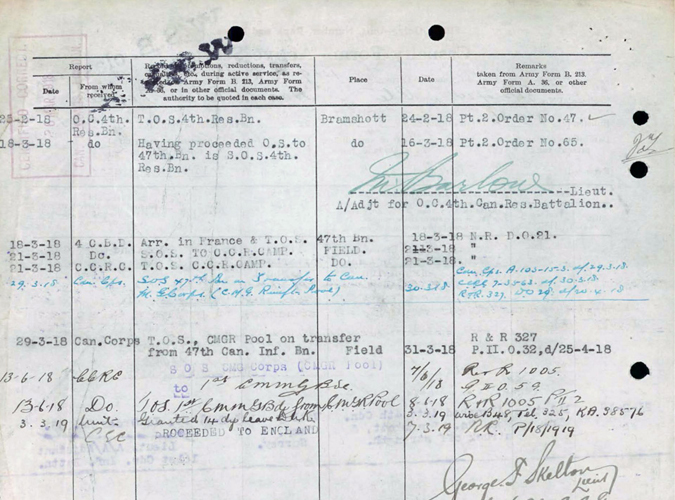 Report
Remarks
taken from Army Form B. 213,
Army Form A. 36, or other
official documents.
Date
From whom
received
reductions, transfers,
etc., during active service, as re-
Army Form B. 213, Army Form
or in other official documents. The
authority to be quoted in each case.
Place
Date
25-2-18 O.C.4th. T.O.S.4th.Res.Bn. Bramshott 24-2-18 Pt.2.Order No.47.
Res.Bn.
18-3-18 do Having proceeded O.S.to do 16-3-18 Pt.2.Order No.65.
47th.Bn. is S.O.S.4th.
Res.Bn.
Barlow
Lieut.
A/Adjt for O.C.4th.Can.Res.Battalion..
18-3-18 4 C.B.D. Arr. in France & T.O.S. 47th Bn. 18-3-18 N.R. D.O.21.
21-3-18 Do. S.O.S. TO C.C.R.CAMP. FIELD. 21-3-18 "
21-3-18 C.C.R.C. T.O.S. C.C.R.CAMP. DO. 21-3-18. "
29.3.18 Can. Cps. S.O.S 47th Bn on Transfer to Can.
M.G.Corps. 30.3.18
R+R. 327
29-3-18 Can.Corps T.O.S., CMGR Pool on transfer R & R 327
from 47th Can. Inf. Bn. Field 31-3-18 P.II.O.32,d/25-4-18
SOS CMG Corps (CMGR Pool)
13-6-18 CCRC to 1st CMMGBde 7/6/18 R+R 1005
13-6-18 Do. TOS. 1st CMMGBde from CMGR Pool 8-6-18 R+R 1005
3.3.19 Unit Granted 14 dys Leave 3.3.19
PROCEEDED TO ENGLAND 7-3-19
George F Skelton
Lieut